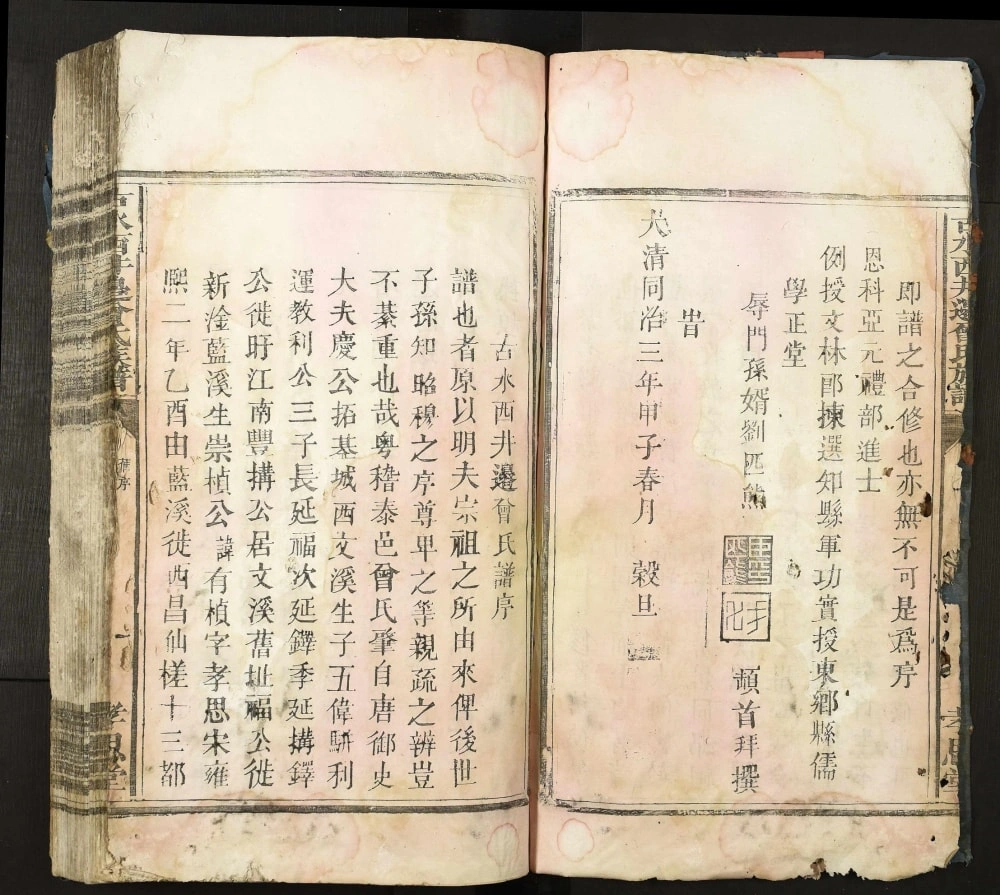 即譜之合修也亦無不可是爲序
恩科亞元禮部進士
例授文林郎揀選知縣軍功實授東鄉縣儒
學正堂
辱門孫婿劉匹熊
頓首拜撰
旹
大清同治三年甲子春月 榖旦
古水西井邊曾氏譜序
譜也者原以明夫宗祖之所由來俾後世
子孫知昭穆之序尊卑之等親疏之辨豈
不綦重也哉粵稽泰邑曾氏肇自唐御史
大夫慶公拓基城西文溪生子五偉駢利
運教利公三子長延福次延鐸季延搆鐸
公徙盱江南豐搆公居文溪舊址福公徙
新淦藍溪生崇楨公諱有楨字孝思宋雍
熙二年乙酉由藍溪徙西昌仙槎十三都
舊序
孝思堂